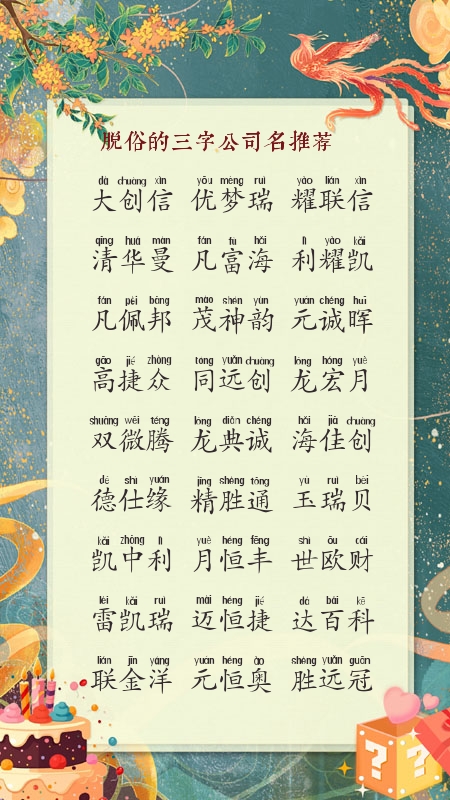 脱俗的三字公司名推荐
dà chuàng xìn yōu mèng ruì yào lián xìn
大创信 优梦瑞 耀联信
qīng huá màn fán fù hǎi lì yào kǎi
清华曼 凡富海 利耀凯
fán pèi bāng mào shén yùn yuán chéng huī
凡佩邦 茂神韵 元诚晖
gāo jié zhòng tóng yuǎn chuàng lóng hóng yuè
高捷众 同远创 龙宏月
shuāng wēi téng lóng diǎn chéng hǎi jiā chuàng
双微腾 龙典诚 海佳创
dé shì yuán jīng shèng tōng yù ruì bèi
德仕缘 精胜通 玉瑞贝
kǎi zhōng lì yuè héng fēng shì ōu cái
凯中利 月恒丰 世欧财
léi kǎi ruì mài héng jié dá bǎi kē
雷凯瑞 迈恒捷 达百科
lián jīn yáng yuán héng ào shèng yuǎn guān
联金洋 元恒奥 胜远冠
? ?